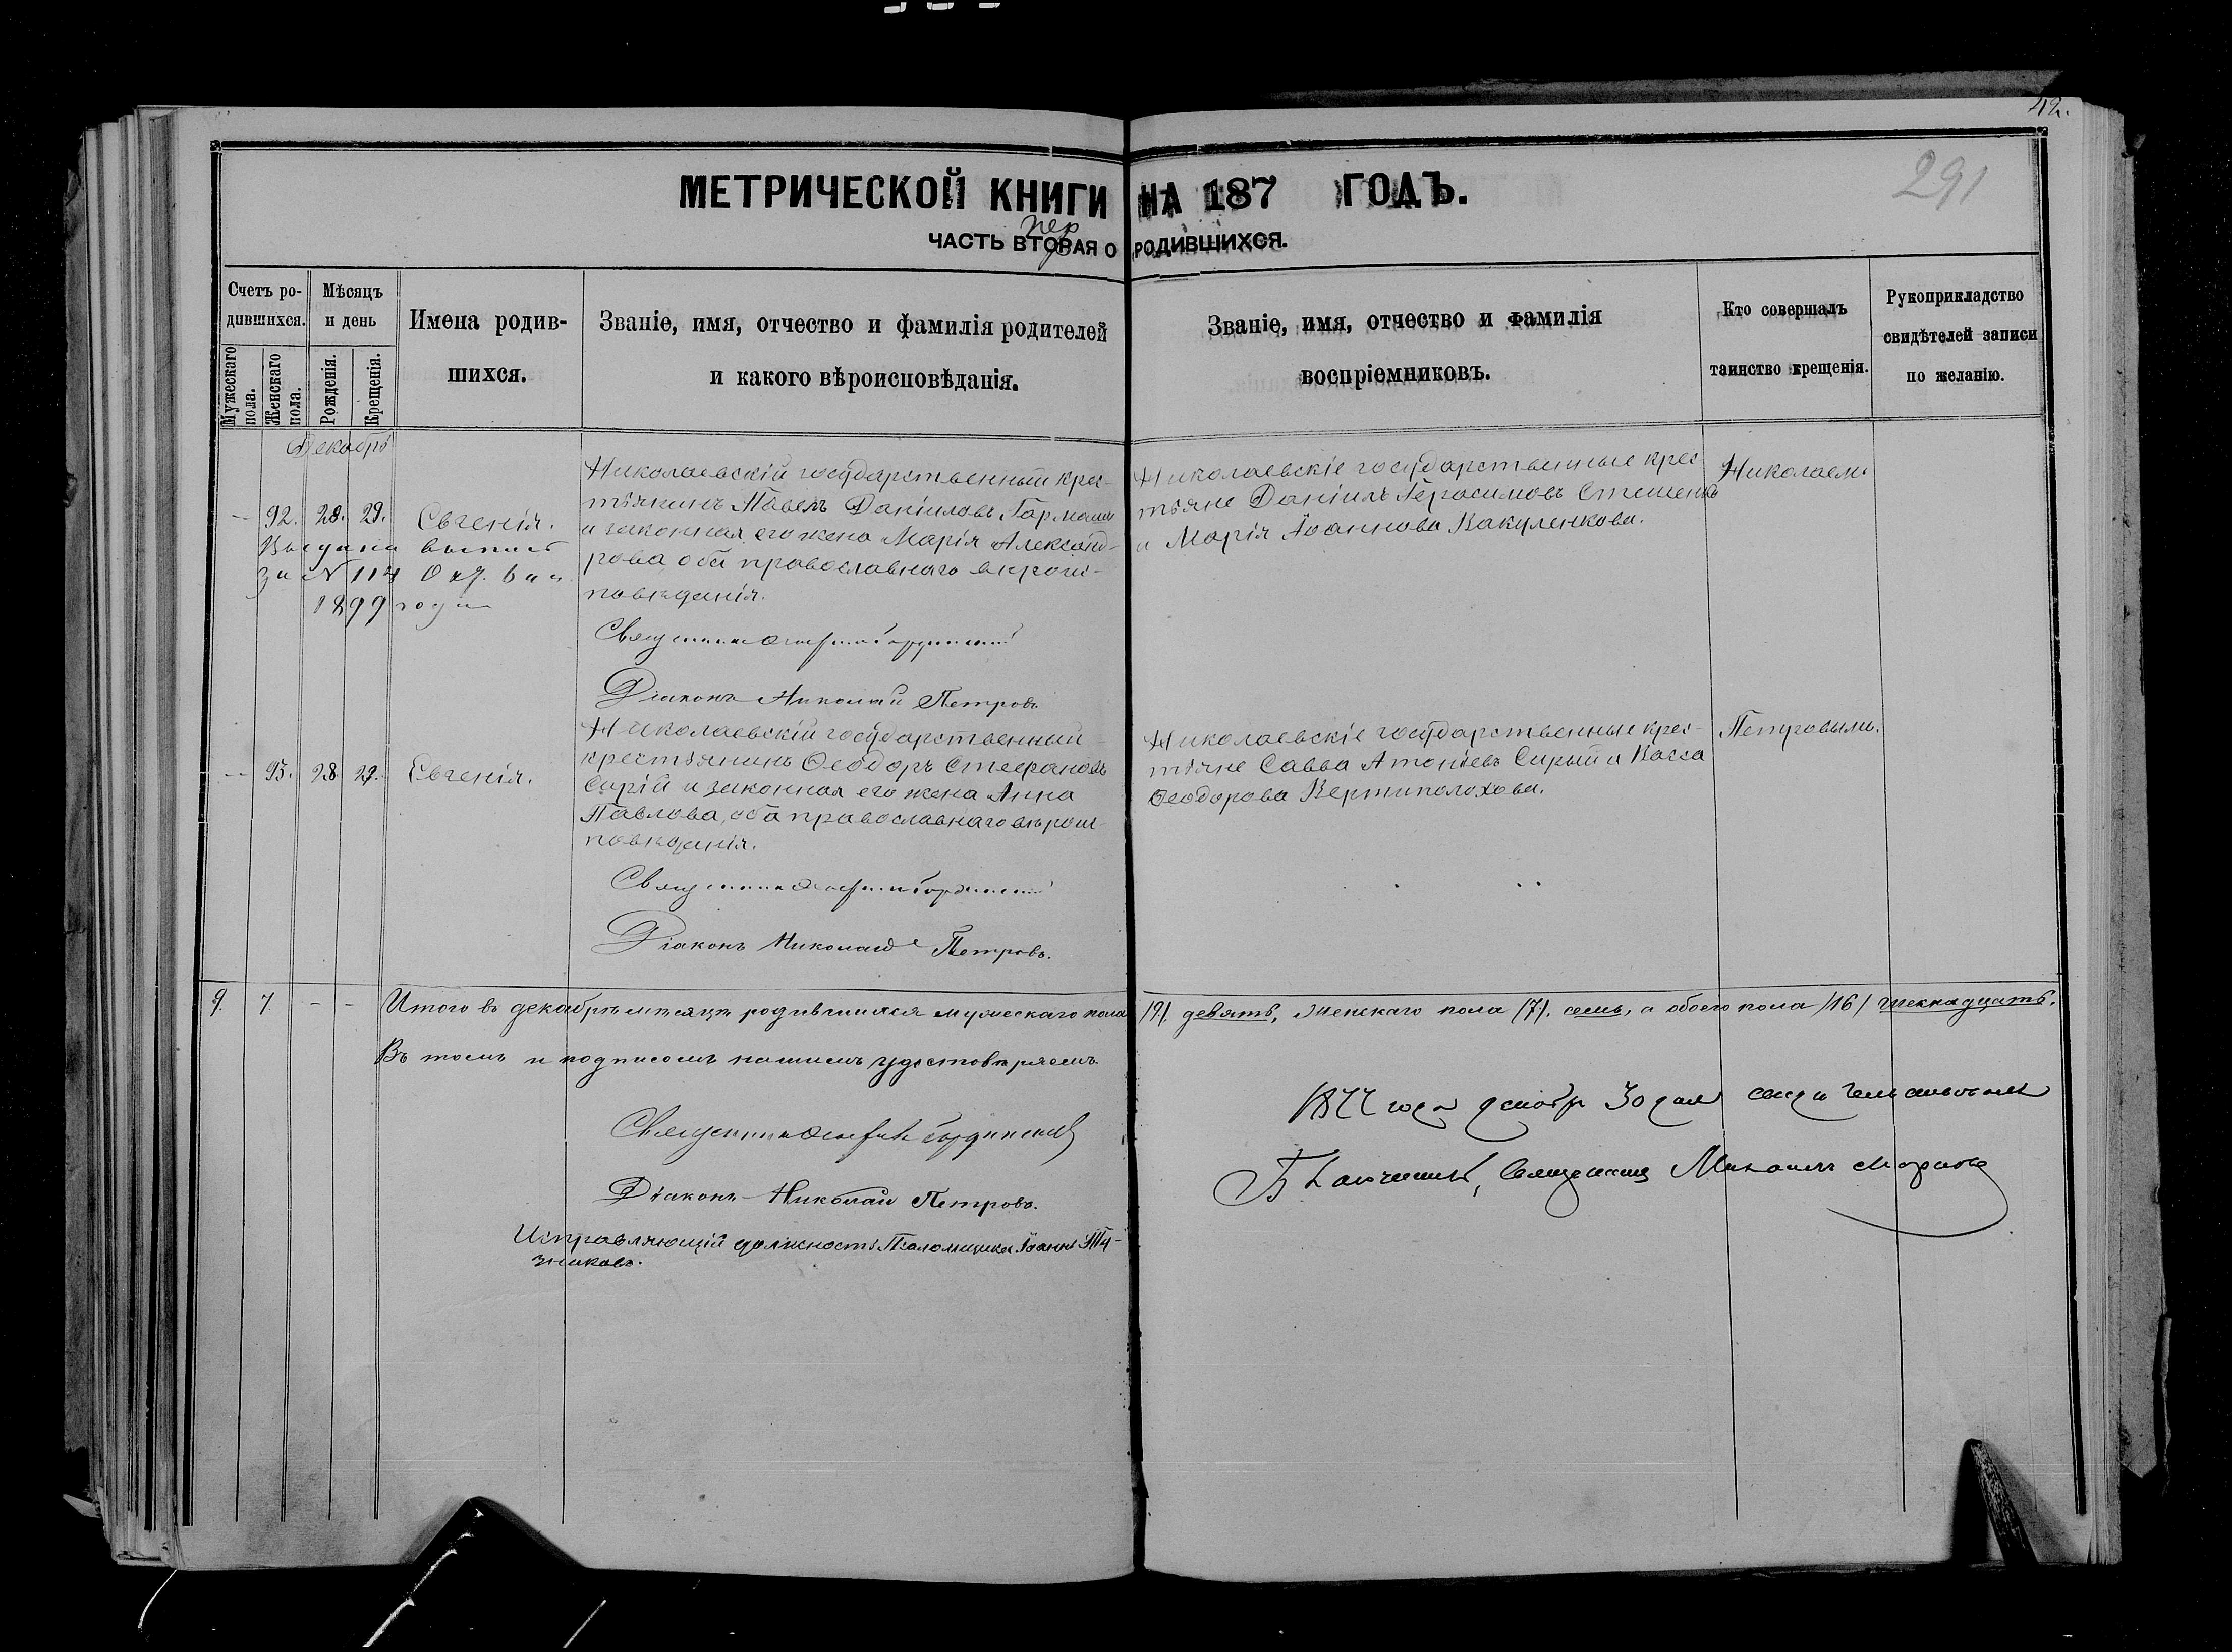 42.
291
МЕТРИЧЕСКОЙ КНИГИ НА 187 ГОДЪ.
пер
ЧАСТЬ ВТОРАЯ О РОДИВШИХСЯ.
Счетъ родившихся.
Мужескаго пола.
Женскаго пола.
Мѣсяцъ и день
Рожденія.
Крещенія.
Имена родив-
шихся.
Званіе, имя, отчество и фамилія родителей
и какого вѣроисповѣданія.
Званіе, имя, отчество и фамилія
воспріемниковъ.
Кто совершалъ
таинство крещенія.
Рукоприкладство
свидѣтелей записи
по желанію.
Декабрь
— 92. 28. 29. Евгенія.
Выдана выпись
за № 114 Окт. 6 дня
1899 года
Николаевскій государственный крес-
тьянинъ Павелъ Даніиловъ Гармашъ
и законная его жена Марія Александ-
рова оба православнаго вѣроис-
повѣданія.
Священникъ
Діаконъ Николай Петровъ
Николаевскіе государственные крес-
тьяне Даніилъ Герасимовъ Стешенко
и Марія Іоаннова Вакуленкова.
Николаемъ
— 93. 28. 29. Евгенія.
Николаевскій государственный
крестьянинъ Ѳеодоръ Стефановъ
Сирій и законная его жена Анна
Павлова, оба православнаго вѣроис-
повѣданія.
Священникъ
Діаконъ Николай Петровъ.
Николаевскіе государственные крес-
тьяне Савва Атоніевъ Сирый и Васса
Ѳеодорова Вертиполохова.
Петровымъ.
9. 7. - - Итого въ декабрѣ мѣсяцѣ родившихся мужескаго пола /9/. девять, женскаго пола /7/. семь, а обоего пола /16/ шестнадцать.
Въ томъ и подписомъ нашимъ удостовѣряемъ.
Священникъ
Діаконъ Николай Петровъ.
Исправляющій должность Псаломщика Іоаннъ
1877 года декабр 30 дня
Благочинный, Священникъ Михаилъ